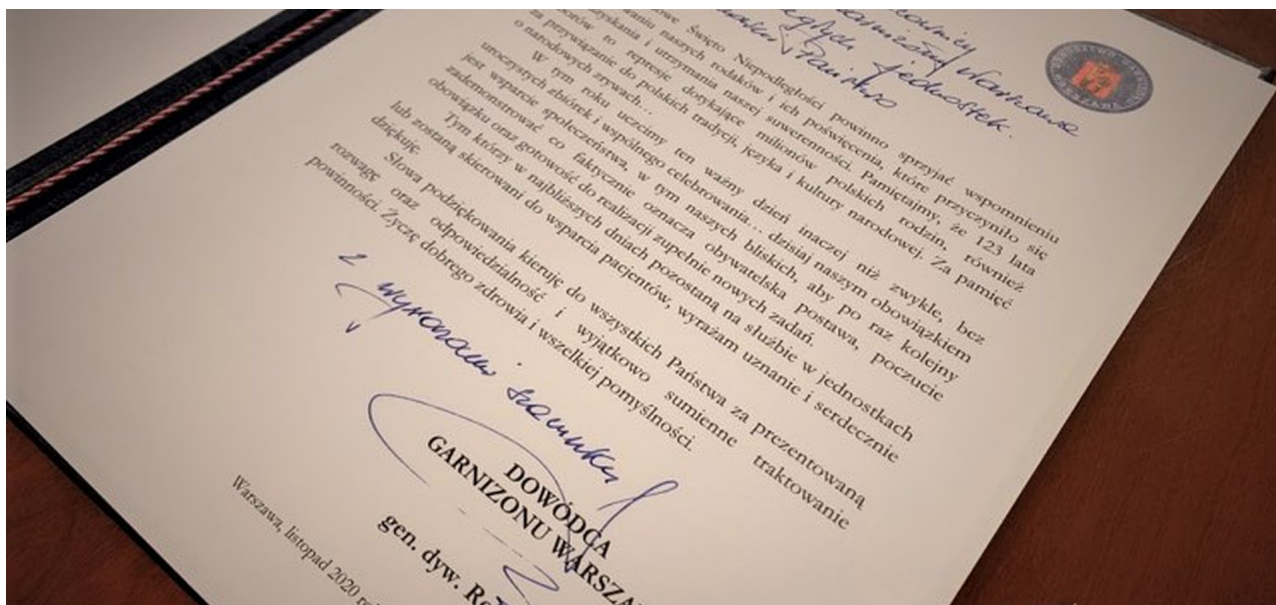 Garnizonu Warszawa
jednostek.
Państwo
owe Święto Niepodległości powinno sprzyjać wspomnieniu
naszych rodaków i ich poświęcenia, które przyczyniło się
zyskania i utrzymania naszej suwerenności. Pamiętajmy, że 123 lata
to represje dotykające milionów polskich rodzin, również
za przywiązanie do polskiej tradycji, języka i kultury narodowej. Za pamięć
o narodowych zrywach...
W tym roku uczcimy ten ważny dzień inaczej niż zwykle, bez
uroczystych zbiórek i wspólnego celebrowania... dzisiaj naszym obowiązkiem
jest wsparcie społeczeństwa, w tym naszych bliskich, aby po raz kolejny
zademonstrować co faktycznie oznacza obywatelska postawa, poczucie
obowiązku oraz gotowość do realizacji zupełnie nowych zadań.
Tym którzy w najbliższych dniach pozostaną na służbie w jednostkach
lub zostaną skierowani do wsparcia pacjentów, wyrażam uznanie i serdecznie
dziękuję.
Słowa podziękowania kieruję do wszystkich Państwa za prezentowaną
rozwagę oraz odpowiedzialność i wyjątkowo sumienne traktowanie
powinności. Życzę dobrego zdrowia i wszelkiej pomyślności.
z wyrazami szacunku
DOWÓDCA
GARNIZONU WARSZA
gen. dyw. Ro
Warszawa, listopad 2020 ro